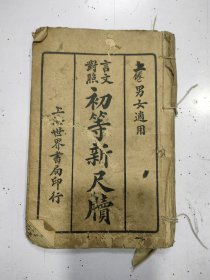 土𠊎男女適用
言文
對照
初等新尺牘
上海世界書局印行